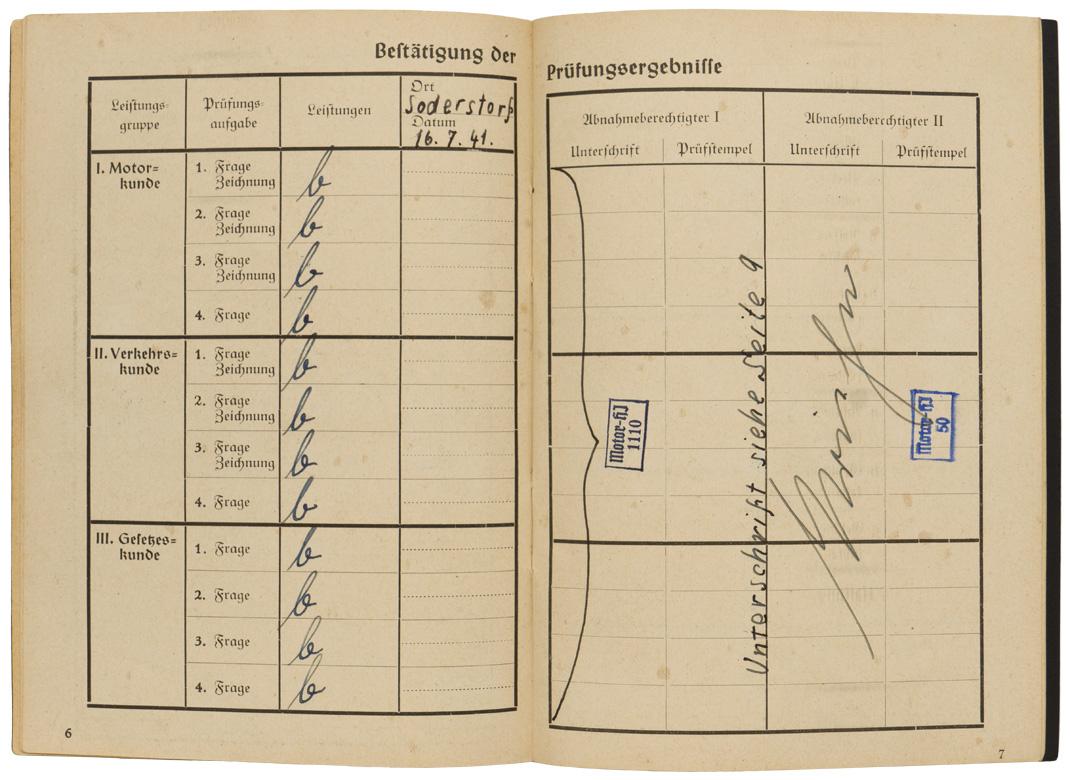 Bestätigung der
Leistungs-
gruppe
Prüfungs-
aufgabe
Leistungen
Ort
Soderstorf
Datum
16. 7. 41.
I. Motor-
kunde
1. Frage
Zeichnung
b
2. Frage
Zeichnung
b
3. Frage
Zeichnung
b
4. Frage
b
II. Verkehrs-
kunde
1. Frage
Zeichnung
b
2. Frage
Zeichnung
b
3. Frage
Zeichnung
b
4. Frage
b
III. Gesetzes-
kunde
1. Frage
b
2. Frage
b
3. Frage
b
4. Frage
b
6
Prüfungsergebnisse
Abnahmeberechtigter I
Abnahmeberechtigter II
Unterschrift
Prüfstempel
Unterschrift
Prüfstempel
Motor-HJ
1110
Unterschrift siehe Seite 9
Motor-HJ
50
7